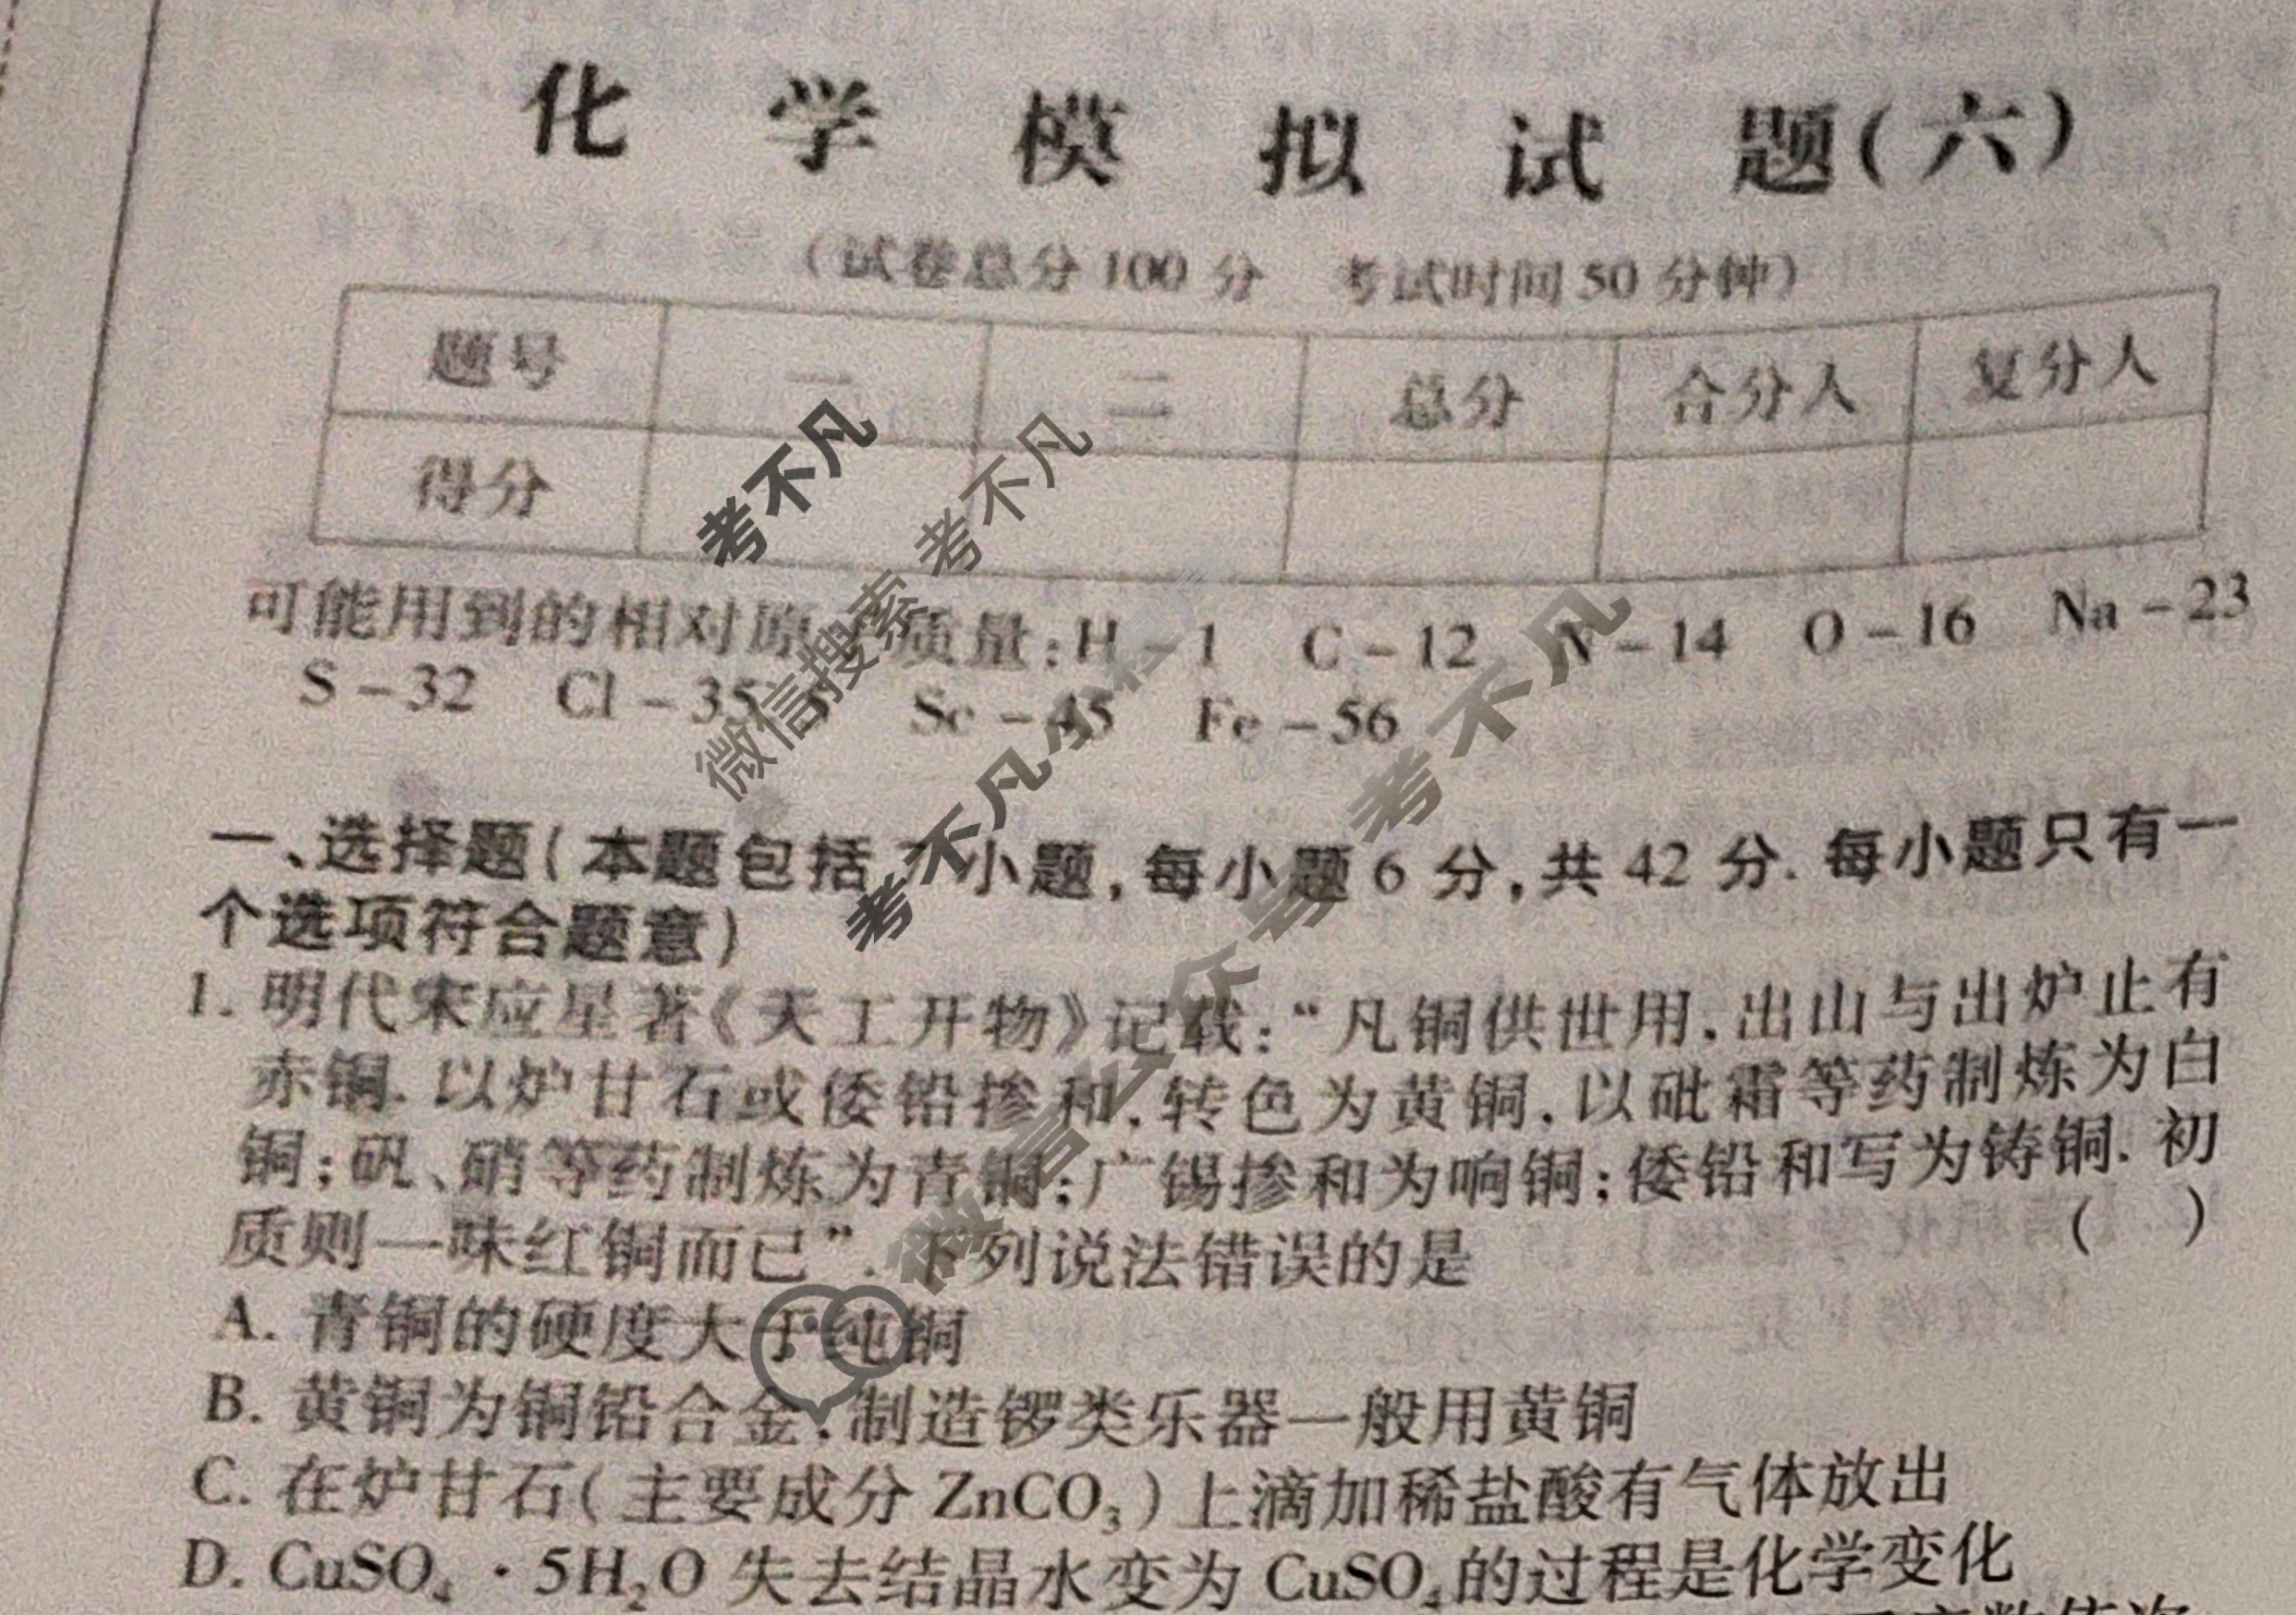 化学模拟试题(六)
(试卷总分100分 考试时间50分钟)
题号 一 二 总分 合分人 复分人
得分
可能用到的相对原 质量:H-1 C-12 N-14 O-16 Na-23
S-32 Cl-35.5 Sc-45 Fe-56
一、选择题(本题包括7小题,每小题6分,共42分.每小题只有一
个选项符合题意)
1. 明代宋应星著《天工开物》记载:“凡铜供世用,出山与出炉止有
赤铜.以炉甘石或倭铅掺和,转色为黄铜,以砒霜等药制炼为白
铜;矾、硝等药制炼为青铜;广锡掺和为响铜;倭铅和写为铸铜.初
质则一味红铜而已”.下列说法错误的是 ( )
A. 青铜的硬度大于纯铜
B. 黄铜为铜铅合金,制造锣类乐器一般用黄铜
C. 在炉甘石(主要成分ZnCO₃)上滴加稀盐酸有气体放出
D. CuSO₄·5H₂O失去结晶水变为CuSO₄的过程是化学变化
考不凡
微信搜索 考不凡
考不凡小程序
微信公众号 考不凡